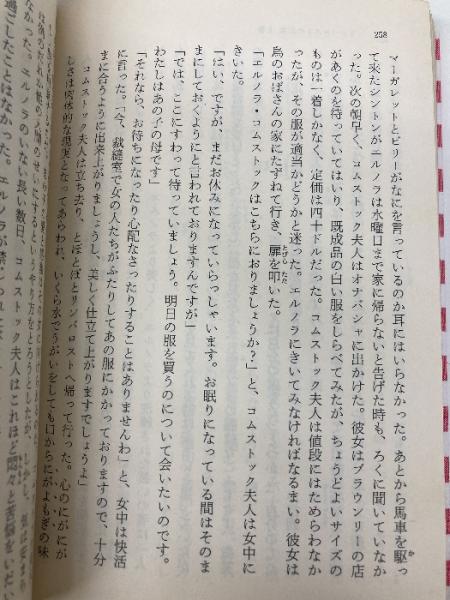 258
マーガレットとビリーがなにを言っているのか耳にはいらなかった。あとから馬車を駆っ
て来たシントンがエルノラは水曜日まで家に帰らないと告げた時も、ろくに聞いていなか
った。次の朝早く、コムストック夫人はオナバシャに出かけた。彼女はブラウンリーの店
があくのを待っていてはいり、既成品の白い服をしらべてみたが、ちょうどよいサイズの
ものは一着しかなく、定価は四十ドルだった。コムストック夫人は値段にはためらわなか
ったが、その服が適当かどうかと迷った。エルノラにきいてみなければなるまい。彼女は
鳥のおばさんの家にたずねて行き、扉を叩いた。
「エルノラ・コムストックはこちらにおりましょうか?」と、コムストック夫人は女中に
「はい、ですが、まだお休みになっていらっしゃいます。お眠りになっている間はそのま
まにしておくようにと言われておりますんですが」
「では、ここにすわって待っていましょう。明日の服を買うのについて会いたいのです。
わたしはあの子の母です」
「それなら、お待ちになったり心配なさったりすることはありませんわ」と、女中は快活
に言った。「今、裁縫室で女の人たちがふたりしてあの服にかかっておりますので、十分
まに合うように出来上がりましょうし、美しく仕立て上がりますでしょうよ」
コムストック夫人は立ち去り、とぼとぼとリンバロストへ帰って行った。心のにがにが
しさは肉体的な現実となってあらわれ、いくら水でうがいをしても口からにがよもぎの味
過ごしたことはなかった。エルノラが
エルノラのない長い数日、コムストック夫人はこれほど悶々と苦悩をいだい